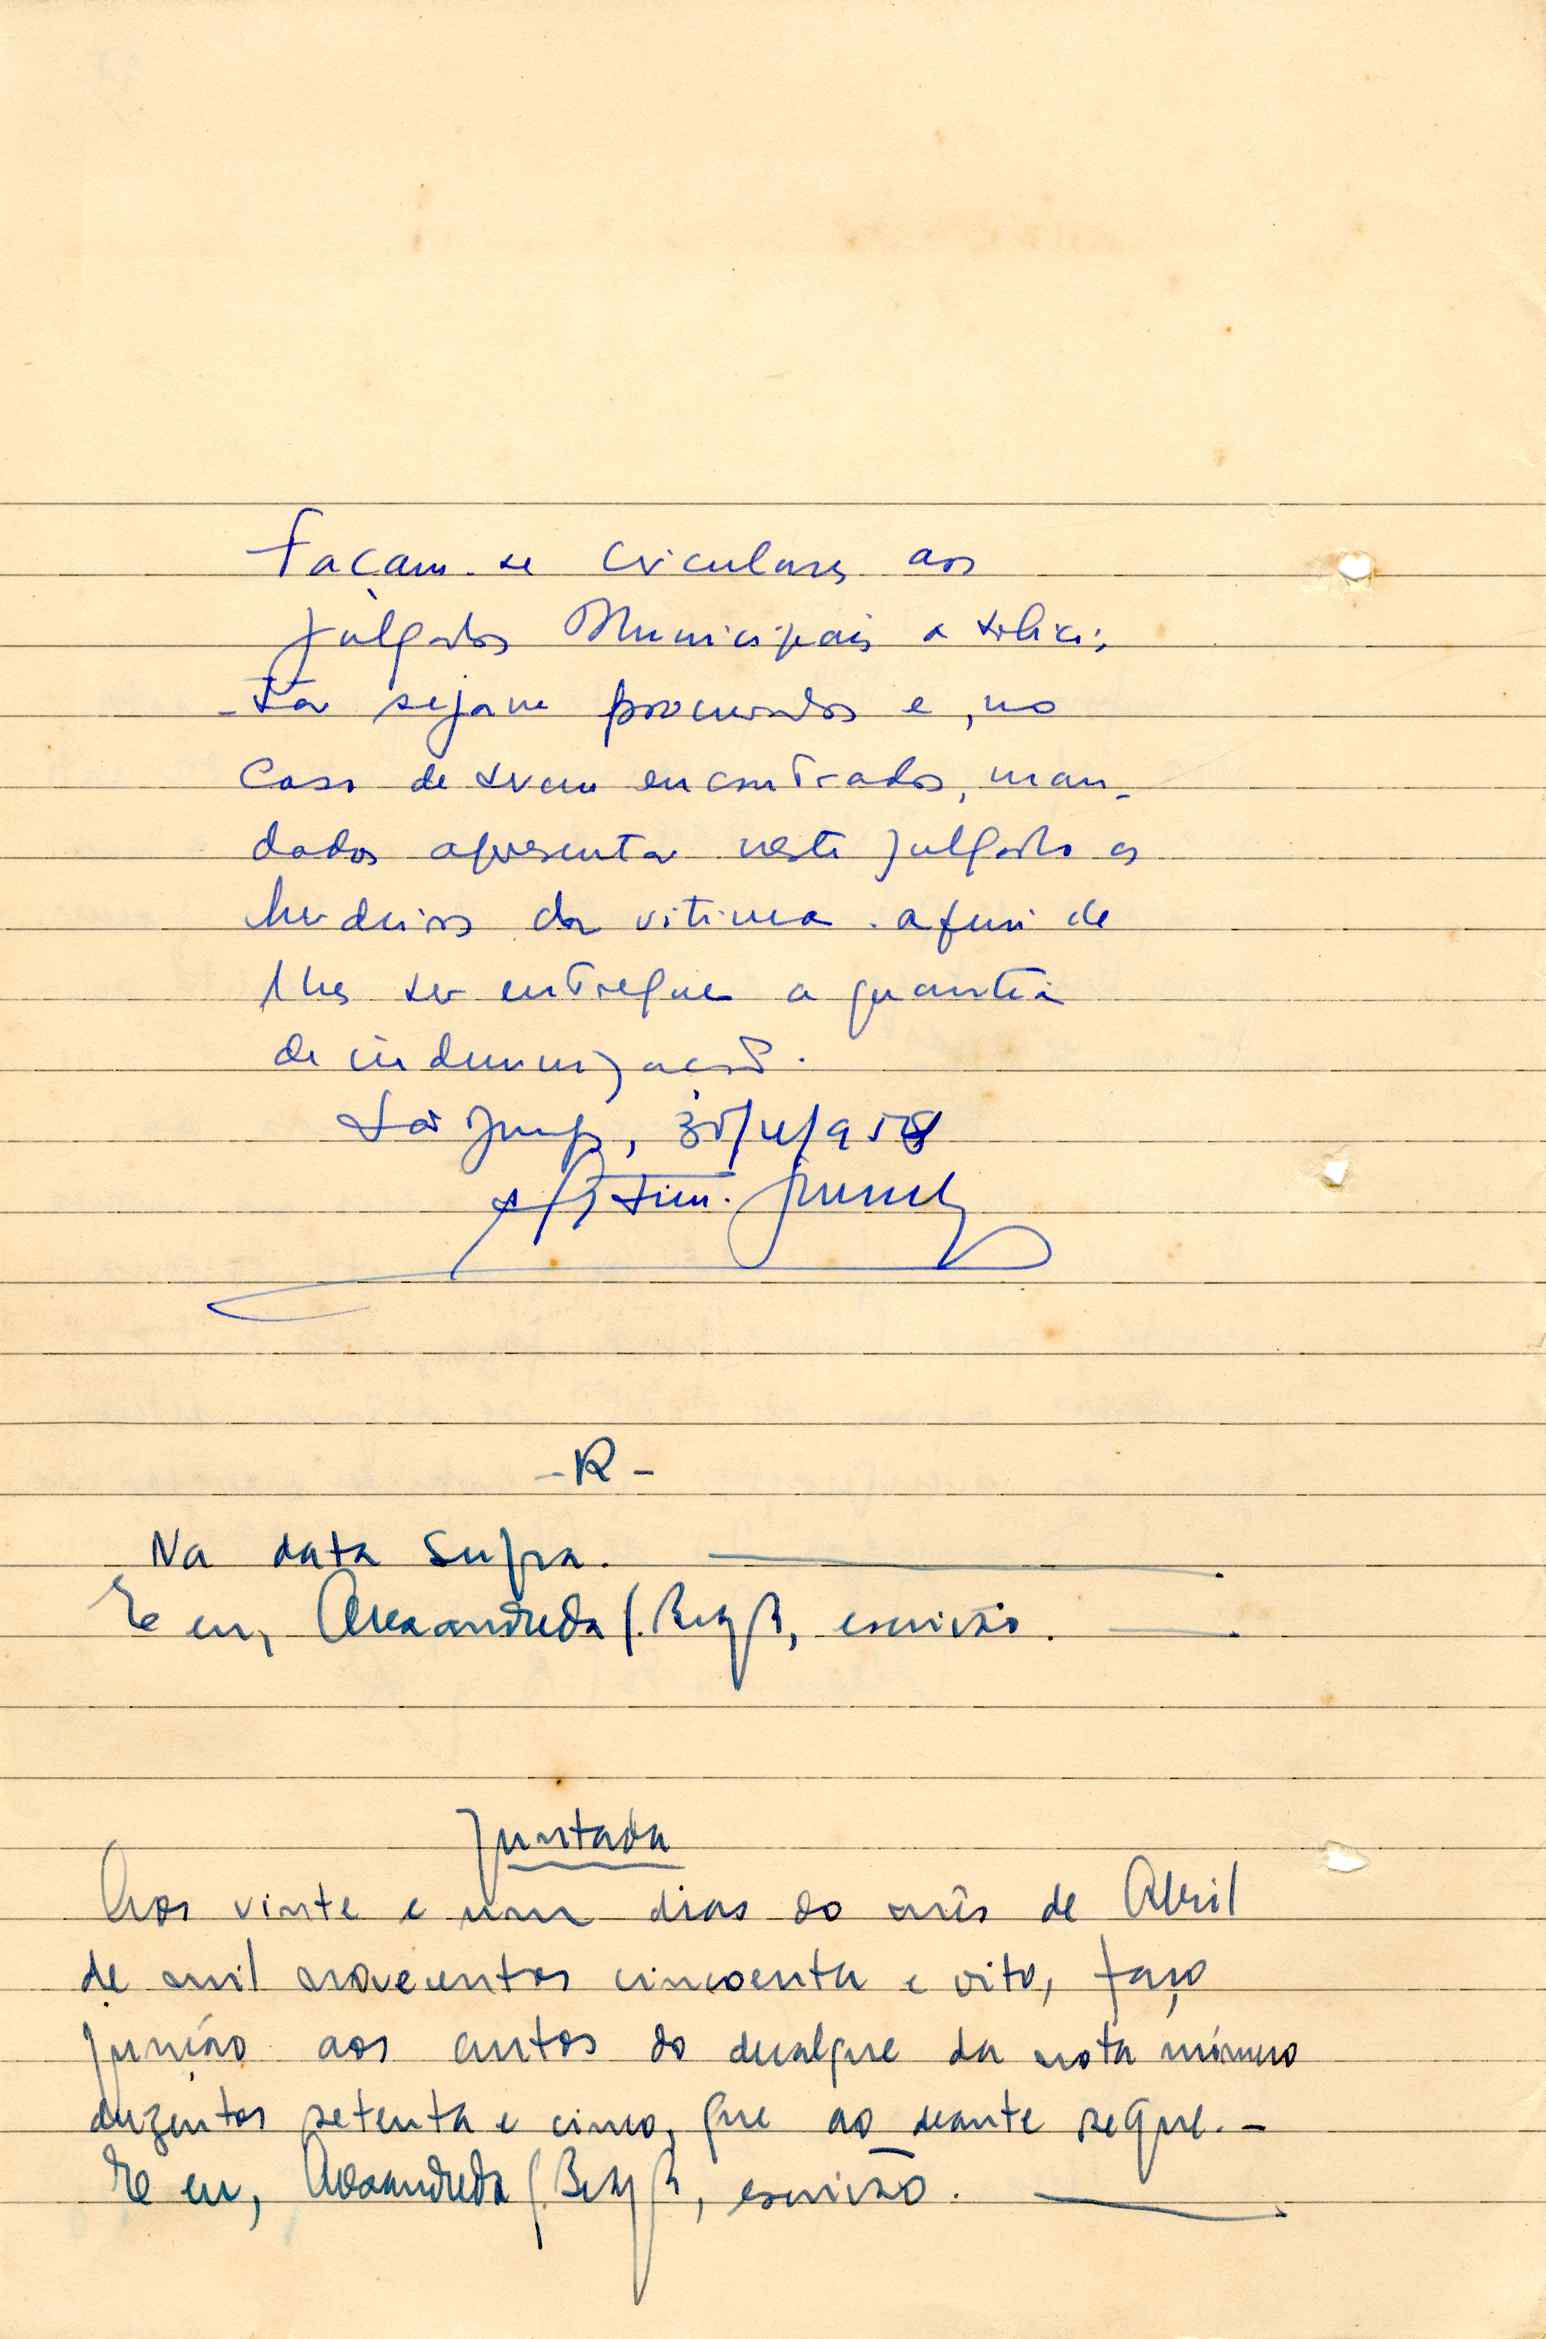 Façam-se circulares aos
Julgados Municipais a solici-
-tar sejam procurados e, no
caso de serem encontrados, man-
dados apresentar neste Julgado os
herdeiros da vitima. afim de
lhes ser entregue a quantia
de indemnização.
/4/958
-R-
Na data supra.
E eu, escrivão.
Juntada
Aos vinte e um dias do mês de Abril
de mil novecentos cincoenta e oito, faço
junção aos autos do dualgue da nota número
duzentos setenta e cinco, que ao deante segue.-
E eu, escrivão.